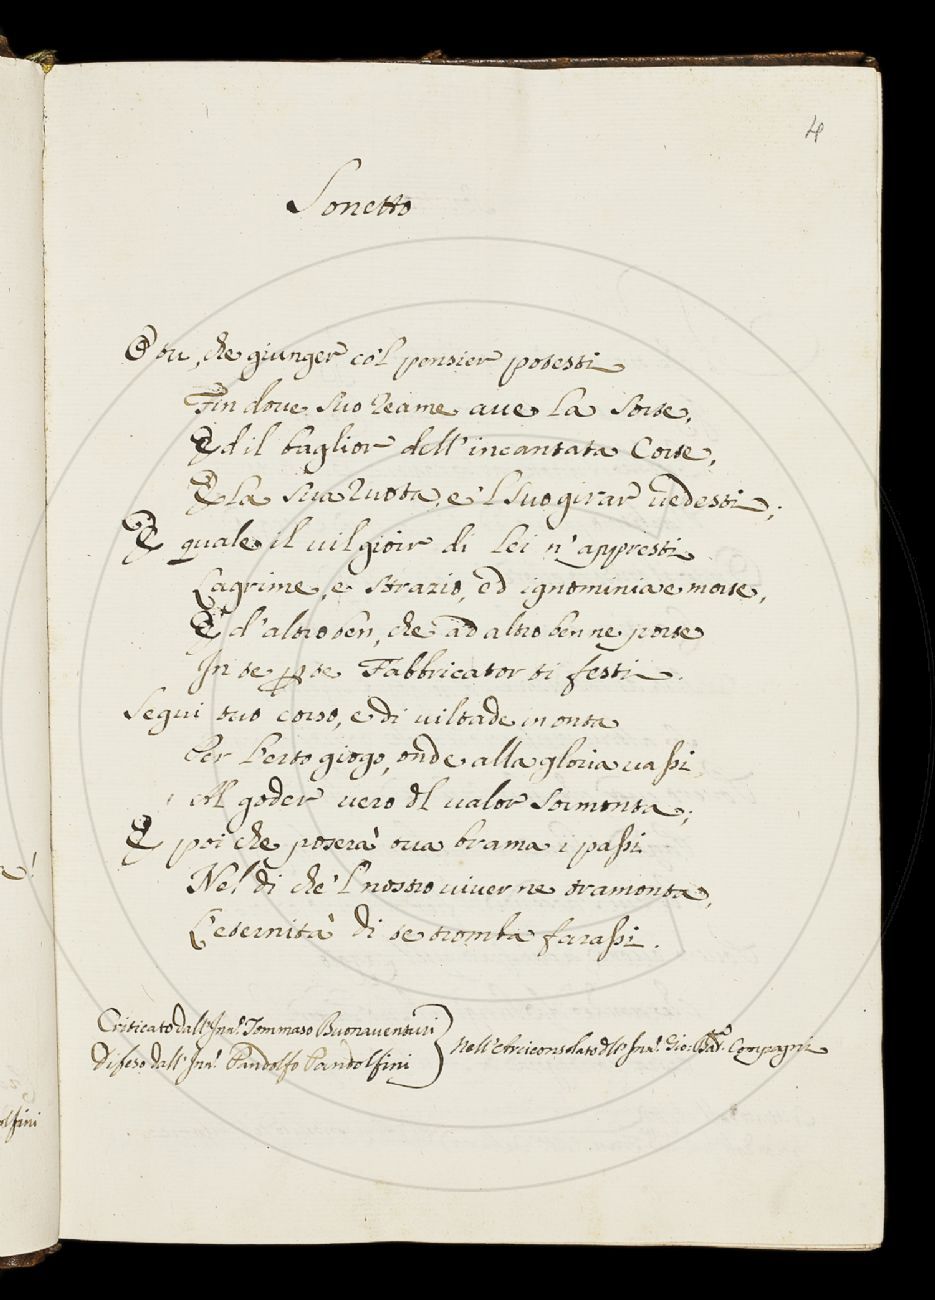 4
Sonetto
O tu, che giunger col pensier potesti
Fin dove suo reame ave la sorte,
Ed il baglior dell'incantata Corte,
E la sua ruota, e 'l suo girar vedesti;
E quale il vil gioir di lei n'appresti
Lagrime, e strazio, ed ignominia e morte,
E d'altro ben, che ad altro ben ne porte
In te p te Fabbricator ti festi.
Segui tuo corso, e di viltade in onta
Per l'erto giogo, onde alla gloria vassi
Al goder vero dl valor sormonta;
E poi che poserà tua brama i passi
Nel dì che 'l nostro viver ne tramonta,
L'eternità di te tromba farassi.
Criticato dall' Inn.º Tommaso Buonaventuri
Difeso dall' Inn.º Pandolfo Pandolfini
Nell' Arciconsolato dll' Inn.º Gio: Bat.ª Compagni
olfini